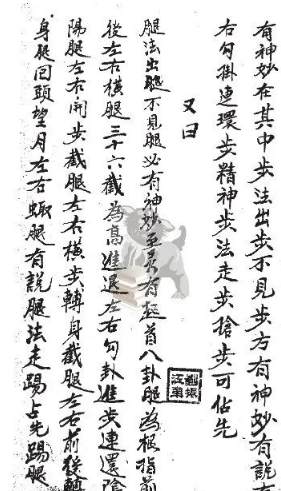 有神妙在其中步法出步不見步方有神妙有說左
右勾掛連環步精神步法走步搶步可佔先
又曰
腿法出腿不見腿必有神妙至有七十二首八卦腿為根指前
後左右橫腿三十六截為高進退左右勾卦進步連還陰
陽腿左右開步截腿左右橫步轉身截腿左右前後轉
身腿回頭望月左右蹶腿有說腿法走踢占先踢腿